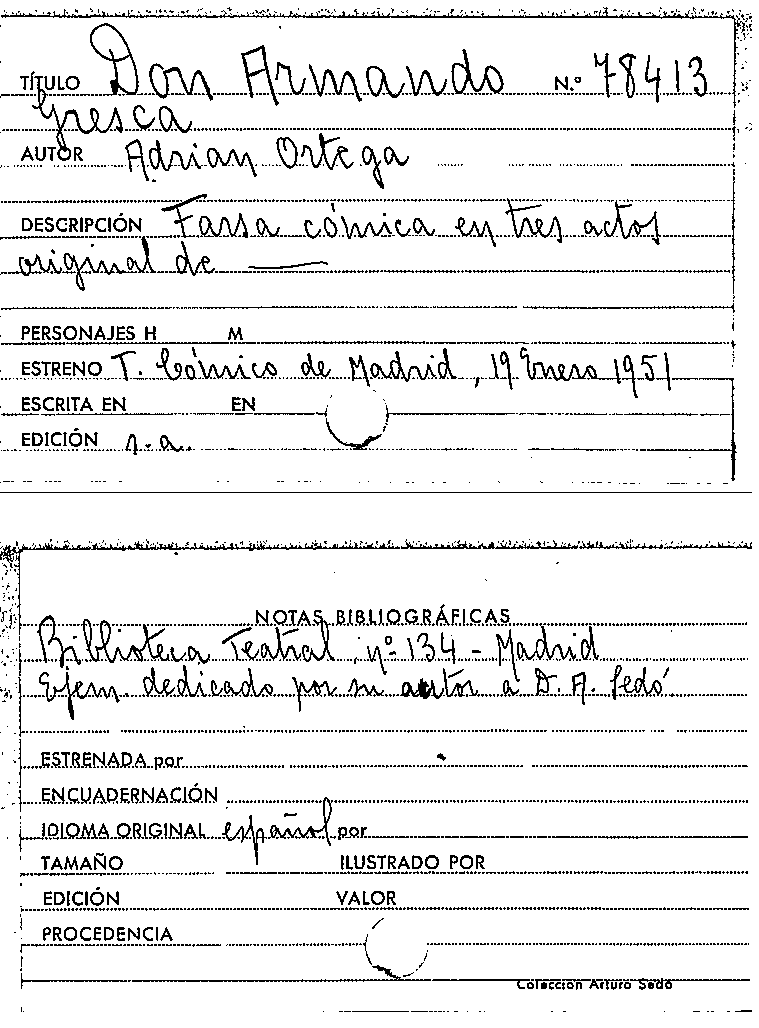 TÍTULO Don Armando N.º 78413
Gresca
AUTOR Adrian Ortega
DESCRIPCIÓN Farsa cómica en tres actos
original de ———
PERSONAJES H M
ESTRENO T. Cómico de Madrid, 19 Enero 1951
ESCRITA EN EN
EDICIÓN s.a.
NOTAS BIBLIOGRÁFICAS
Biblioteca Teatral, nº 134 - Madrid
Ejem. dedicado por su autor a D. A. Sedó
ESTRENADA por
ENCUADERNACIÓN
IDIOMA ORIGINAL español por
TAMAÑO ILUSTRADO POR
EDICIÓN VALOR
PROCEDENCIA
Colección Arturo Sedó